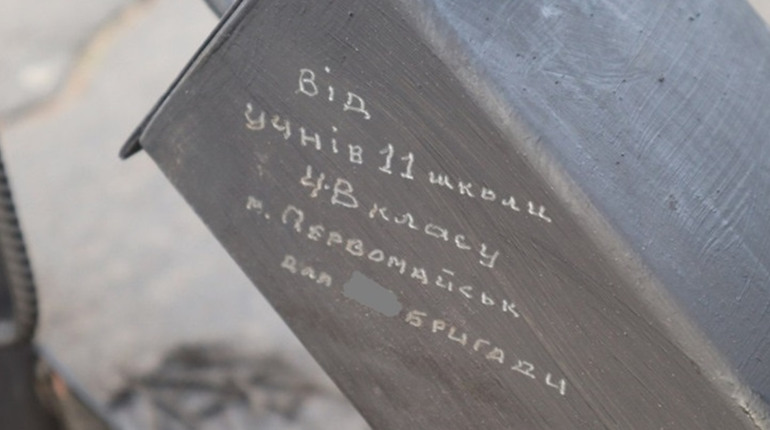 Від
учнів 11 школи
4-В класу
м. Первомайськ
для бригади